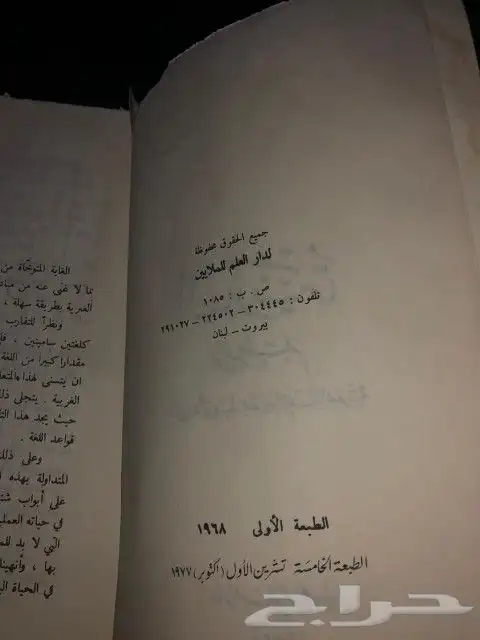 جميع الحقوق محفوظة
لدار العلم للملايين
ص . ب : ١٠٨٥
تلفون : ٣٠٤٤٤٥ - ٢٢٤٥٠٢ - ٢٩١٠٢٧
بيروت - لبنان
الطبعة الأولى ١٩٦٨
الطبعة الخامسة تشرين الأول (أكتوبر) ١٩٧٧
الغاية المتوخاة من
مما لا غنى عنه من
بطريقة سهلة ،
ونظراً للتقارب
كلغتين ساميتين ،
مقداراً كبيراً من اللغة
ان يتسنى لهذا
يتجلى
حيث يجد هذا
قواعد اللغة .
وعلى
المتداولة بهذه
على أبواب
في حياته
التي لا بد
بها ،
في الحياة
حراج